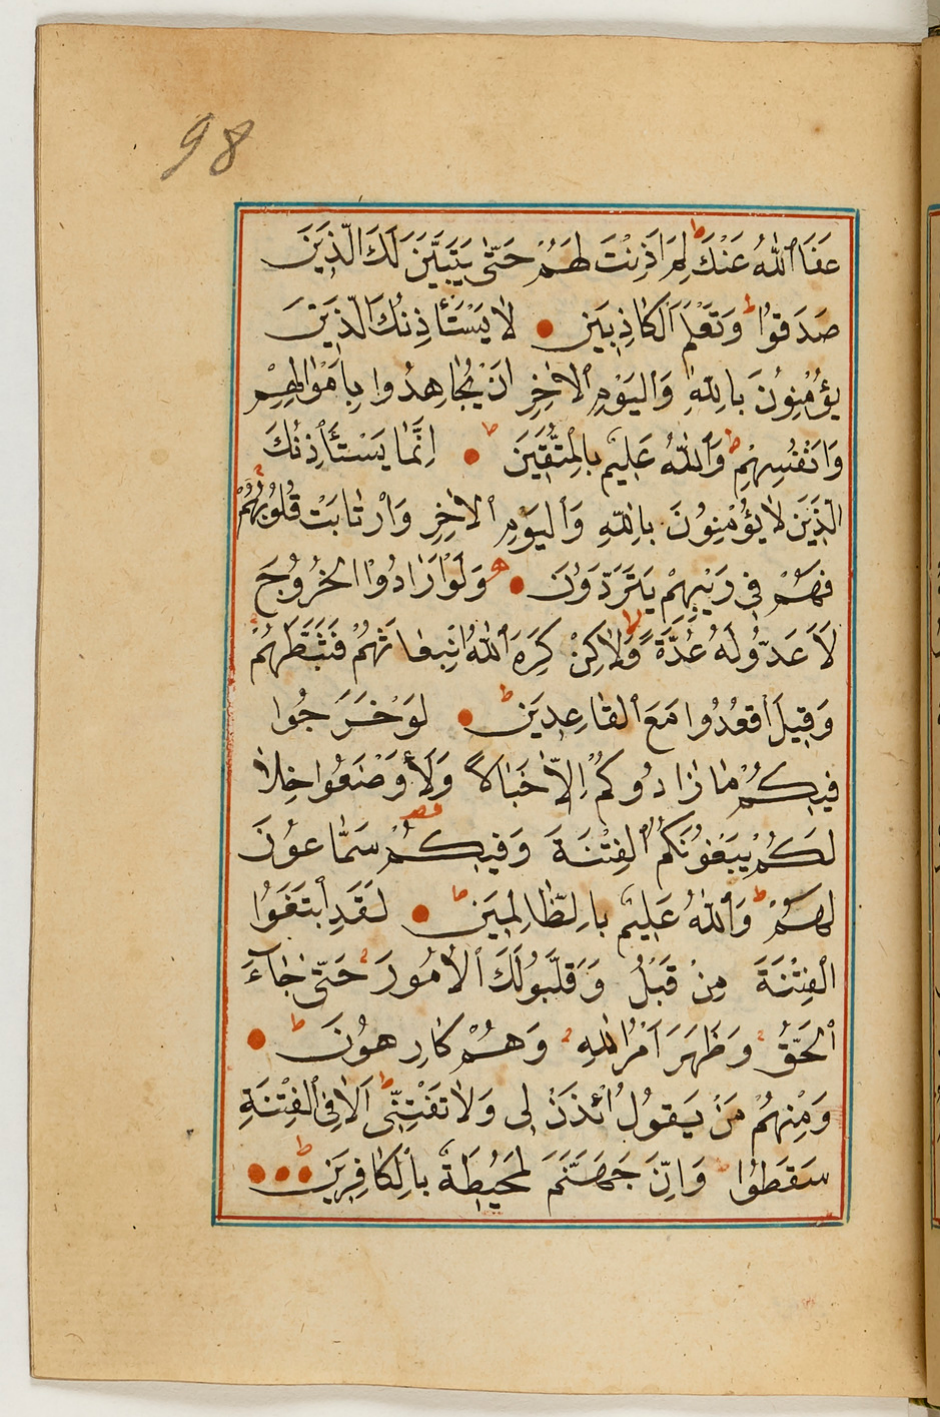 98
عَفَا ٱللّٰهُ عَنْكَ لِمَ اَذِنْتَ لَهُمْ حَتّٰى يَتَبَيَّنَ لَكَ الَّذِينَ
صَدَقُوا وَتَعْلَمَ الْكَاذِبِينَ لَا يَسْتَأْذِنُكَ الَّذِينَ
يُؤْمِنُونَ بِاللّٰهِ وَٱلْيَوْمِ ٱلْاٰخِرِ اَنْ يُجَاهِدُوا بِاَمْوَالِهِمْ
وَاَنْفُسِهِمْ وَٱللّٰهُ عَلِيمٌ بِالْمُتَّقِينَ اِنَّمَا يَسْتَأْذِنُكَ
الَّذِينَ لَا يُؤْمِنُونَ بِاللّٰهِ وَٱلْيَوْمِ ٱلْاٰخِرِ وَٱرْتَابَتْ قُلُوبُهُمْ
فَهُمْ فِى رَيْبِهِمْ يَتَرَدَّدُونَ وَلَوْ اَرَادُوا الْخُرُوجَ
لَاَعَدُّوا لَهُ عُدَّةً وَلَاكِنْ كَرِهَ ٱللّٰهُ انْبِعَاثَهُمْ فَثَبَّطَهُمْ
وَقِيلَ ٱقْعُدُوا مَعَ ٱلْقَاعِدِينَ لَوْ خَرَجُوا
فِيكُمْ مَا زَادُوكُمْ اِلَّا خَبَالًا وَلَأَوْضَعُوا خِلَا
لَكُمْ يَبْغُونَكُمُ ٱلْفِتْنَةَ وَفِيكُمْ سَمَّاعُونَ
لَهُمْ وَٱللّٰهُ عَلِيمٌ بِالظَّالِمِينَ لَقَدِ ٱبْتَغَوُا
الْفِتْنَةَ مِنْ قَبْلُ وَقَلَّبُوا لَكَ ٱلْاُمُورَ حَتّٰى جَآءَ
ٱلْحَقُّ وَظَهَرَ اَمْرُ اللّٰهِ وَهُمْ كَارِهُونَ
وَمِنْهُمْ مَنْ يَقُولُ ٱئْذَنْ لِى وَلَا تَفْتِنِّى اَلَا فِى ٱلْفِتْنَةِ
سَقَطُوا وَاِنَّ جَهَنَّمَ لَمُحِيطَةٌ بِالْكَافِرِينَ